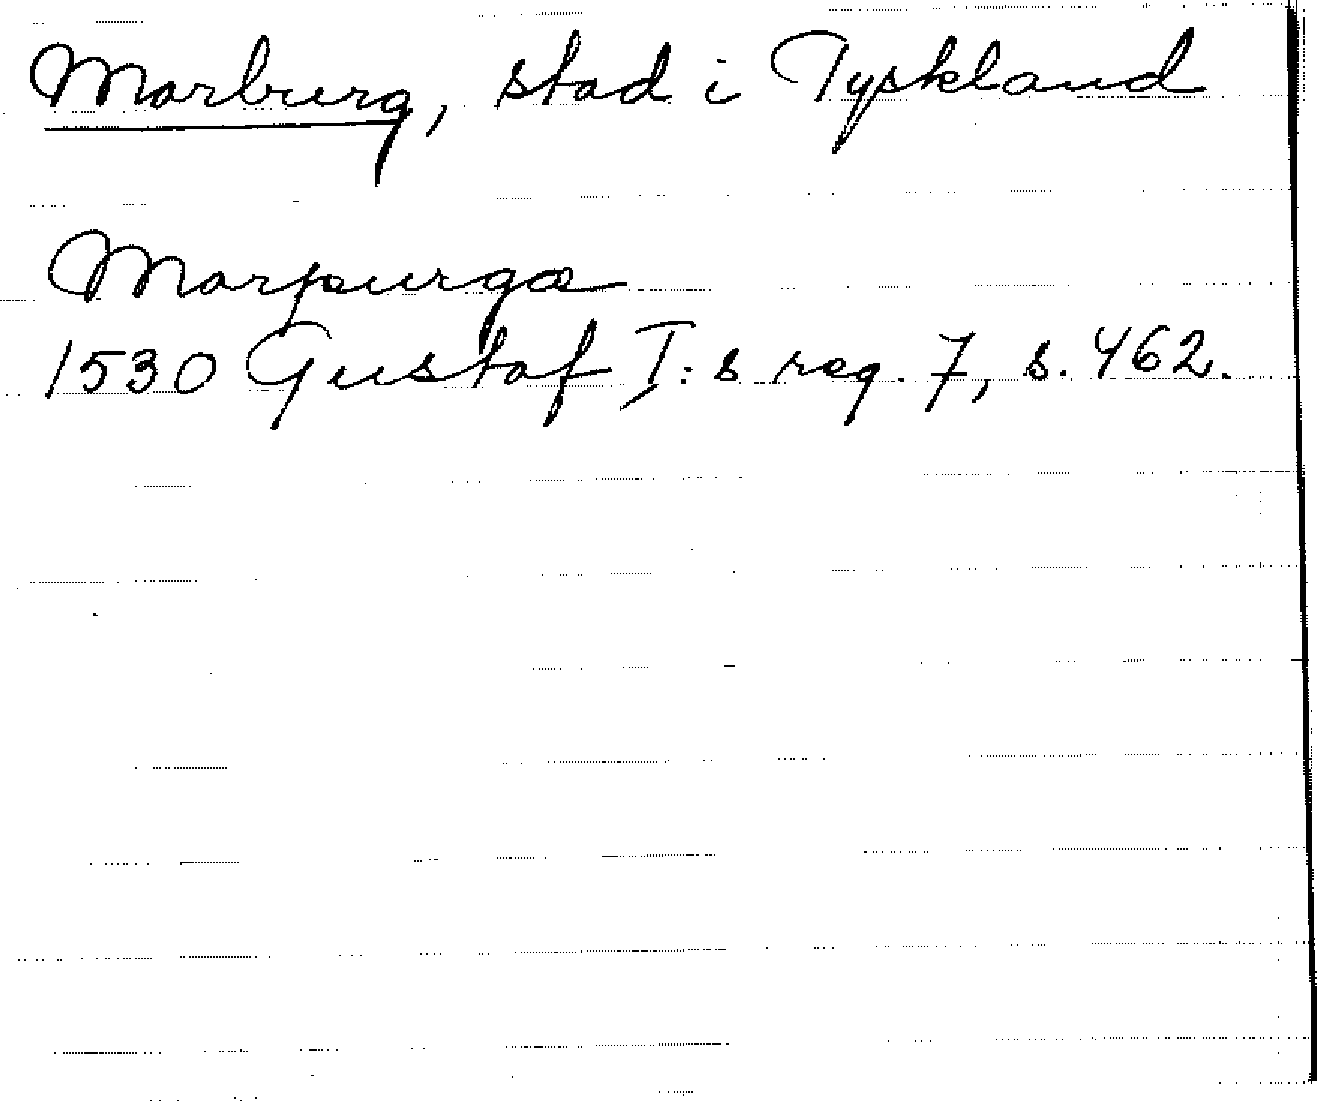 Marburg, stad i Tyskland
Marpurgæ
1530 Gustaf I:s reg. 7, s. 462.